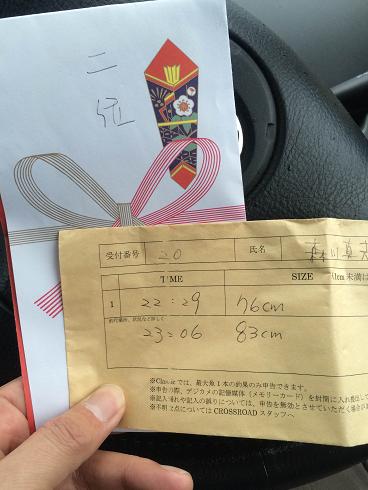 二
位
受付番号 20 氏名 森川真夫
TIME SIZE
1 22:29 76cm
23:06 83cm
※Classicでは、最大魚1本の釣果のみ申告できます。
※申告の際、デジカメの記憶媒体（メモリーカード）を封筒に入れ提出して
※記入漏れや記入の誤りについては、申告を無効とさせていただく場合が
※不明な点については CROSSROAD スタッフへ